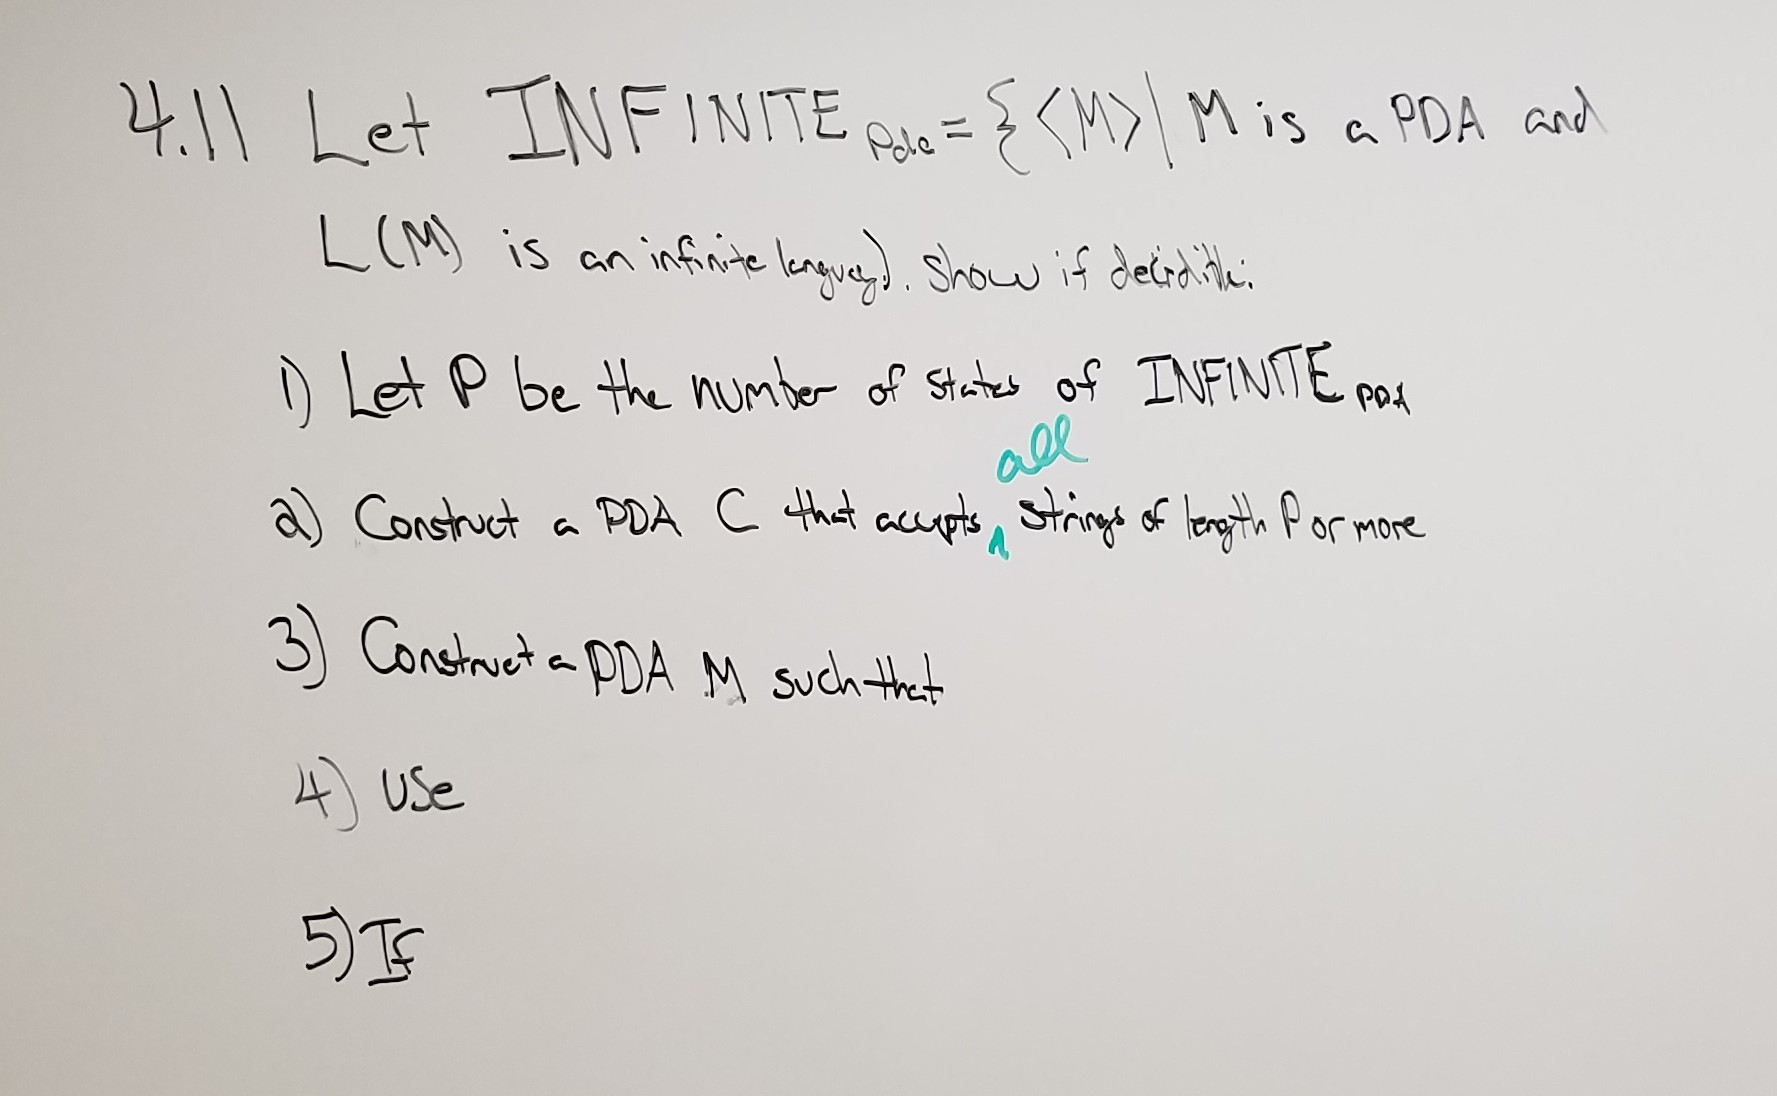 4.11 Let INFINITE Pda = {<M>| M is a PDA and
L(M) is an infinite language}. Show if decidible:
1) Let P be the number of states of INFINITE PDA
all
2) Construct a PDA C that accepts ^ strings of length P or more
3) Construct a PDA M such that
4) Use
5) If